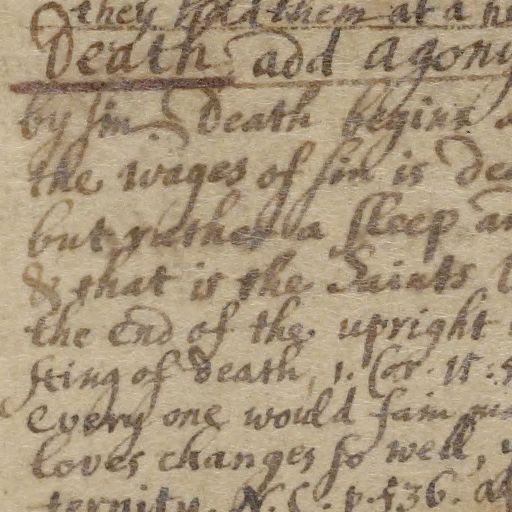 they hold them at a
Death add Agony
by sin Death begins
the wages of sin is
but rather a sleep
& that is the Saints
the end of the upright
sting of death, 1. Cor. 15:
every one would fain
loves changes so well,
ternity. N. C. p. 536.